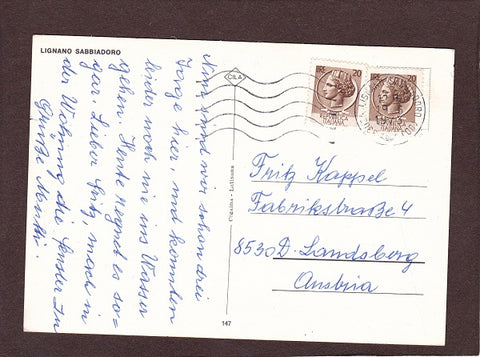 LIGNANO SABBIADORO
Nun sind wir schon drei
Tage hier, und konnten
leider noch nie ins Wasser
gehen. Heute regnet es so=
gar. Lieber Fritz, mach in
der Wohnung die Fenster zu
Grüße Mutti.
CILA
147
20
20
Fritz Kappel
Fabrikstraße 4
8530 D. Landsberg
Austria